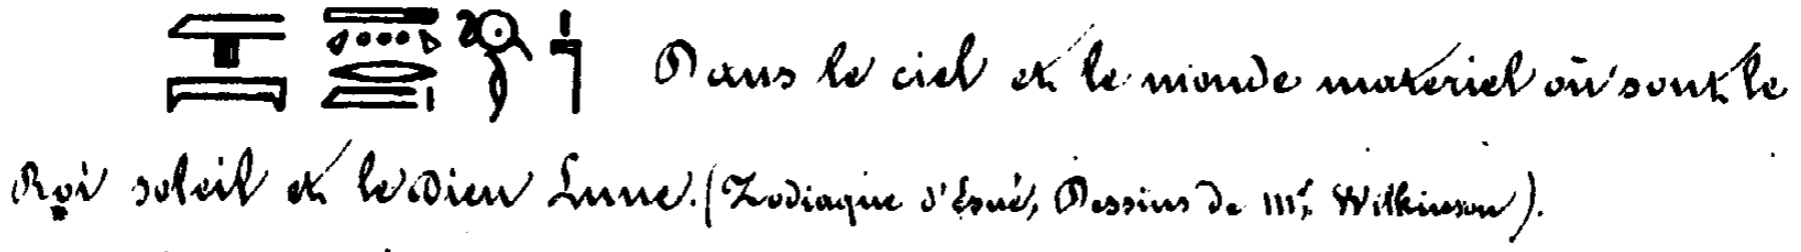 Dans le ciel et le monde materiel où sont le
Roi soleil et le Dieu Lune. (Zodiaque d'Esné, Dessins de Mr. Wilkinson).